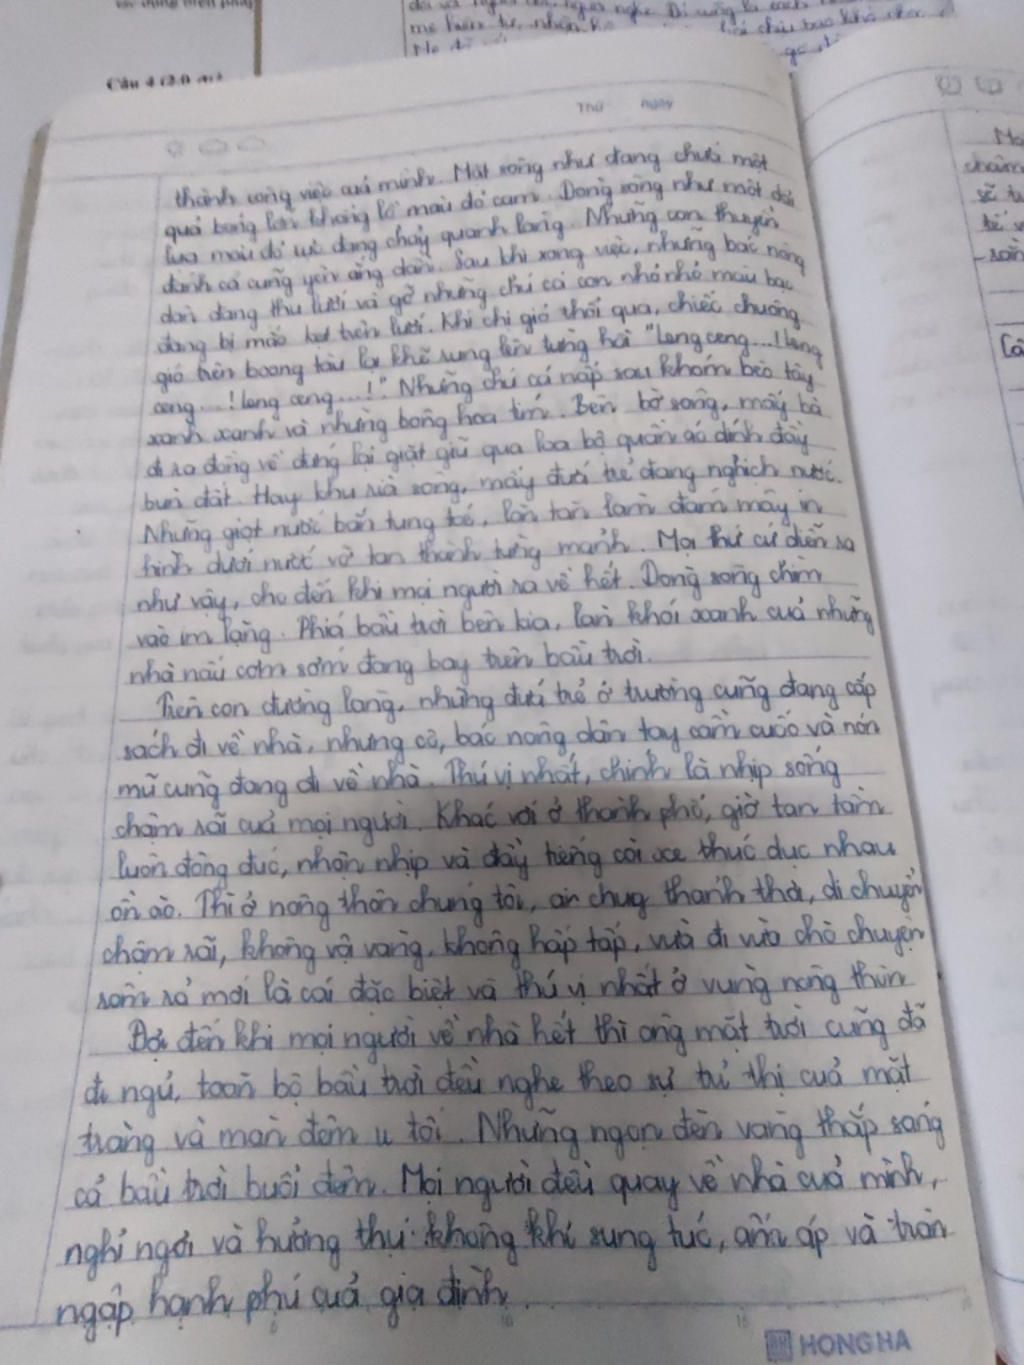 Câu 4 (3.0
Thứ ngày
thành công việc của mình. Mặt sông như đang chứa một
quả bóng lớn khổng lồ màu đỏ cam. Dòng sông như một dải
lụa màu đỏ rực đang chảy quanh làng. Những con thuyền
đánh cá cũng yên ắng dần. Sau khi xong việc, những bác nông
dân đang thu lưới và gỡ những chú cá con nhỏ nhỏ màu bạc
đang bị mắc kẹt trên lưới. Khi chị gió thổi qua, chiếc chuông
gió trên boong tàu lại khẽ rung lên từng hồi "Leng ceng...! leng
ceng...! leng ceng...!". Những chú cá nấp sau khóm bèo tây
xanh xanh và những bông hoa tím. Bên bờ sông, mấy bà
đi ra đồng về đứng lại giặt giũ qua loa bộ quần áo dính đầy
bùn đất. Hay khu rìa sông, mấy đứa trẻ đang nghịch nước.
Những giọt nước bắn tung toé, lan tàn làm đám mây in
hình dưới nước vỡ tan thành từng mảnh. Mọi thứ cứ diễn ra
như vậy, cho đến khi mọi người ra về hết. Dòng sông chìm
vào im lặng. Phía bầu trời bên kia, làn khói xanh của những
nhà nấu cơm sớm đang bay trên bầu trời.
Trên con đường làng, những đứa trẻ ở trường cũng đang cắp
sách đi về nhà, những cô, bác nông dân tay cầm cuốc và nón
mũ cũng đang đi về nhà. Thú vị nhất, chính là nhịp sống
chậm rãi của mọi người. Khác với ở thành phố, giờ tan tầm
luôn đông đúc, nhộn nhịp và đầy tiếng còi xe thúc dục nhau
ồn ào. Thì ở nông thôn chúng tôi, ai cũng thảnh thơi, di chuyển
chậm rãi, không vội vàng, không hấp tấp, vừa đi vừa chò chuyện
rôm rả mới là cái đặc biệt và thú vị nhất ở vùng nông thôn
Đợi đến khi mọi người về nhà hết thì ông mặt trời cũng đã
đi ngủ, toàn bộ bầu trời đều nghe theo sự trị của mặt
trăng và màn đêm u tối. Những ngọn đèn vàng thắp sáng
cả bầu trời buổi đêm. Mọi người đều quay về nhà của mình,
nghỉ ngơi và hưởng thụ không khí sung túc, ấm áp và tràn
ngập hạnh phú của gia đình.
HONG HA